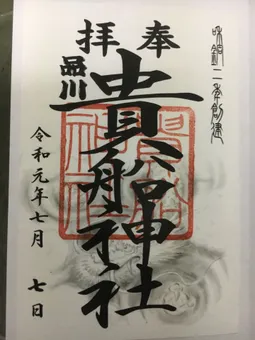 和銅二年創建
奉拝
品川
貴船神社
令和元年七月七日